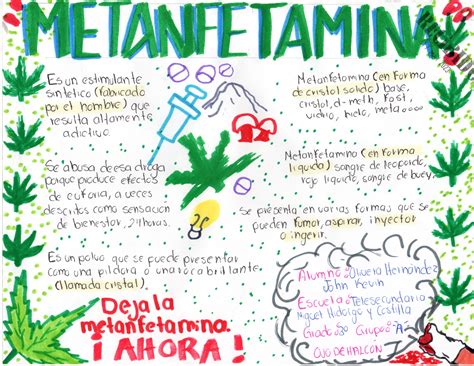 METANFETAMINA
Es un estimulante
sintético (fabricado
por el hombre) que
resulta altamente
adictivo.
Se abusa de esa droga
porque produce efectos
de euforia, a veces
descritos como sensación
de bienestar, 24horas.
Es un polvo que se puede presentar
como una píldora o una roca brillante
(llamada cristal).
Deja la
metanfetamina.
¡AHORA!
Metanfetamina (en forma
de cristal solido) base,
cristal, d-meth, fast,
vidrio, hielo, meta....
Metanfetamina (en forma
liquida) sangre de leopardo,
rojo liquido, sangre de buey.
Se presenta en varias formas que se
pueden fumar, aspirar, inyector
o ingerir.
Alumno: Olivera Hernandez
John Kevin
Escuela: Telesecundaria
Miguel Hidalgo y Costilla
Grado: 3º Grupo: "A"
OJO DE HALCÓN